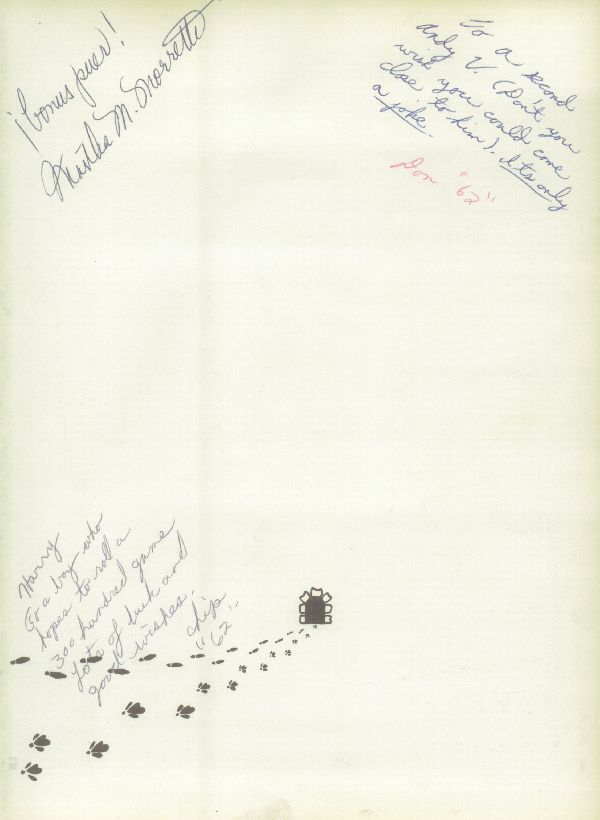 ¡bonus puer!
Martha M. Morrette
To a second
Andy V. (Don't you
wish you could come
close to him). It's only
a joke.
Don "62"
Harry
To a boy who
hopes to roll a
300 hundred game
Lots of luck and
good wishes.
Chip
"62"